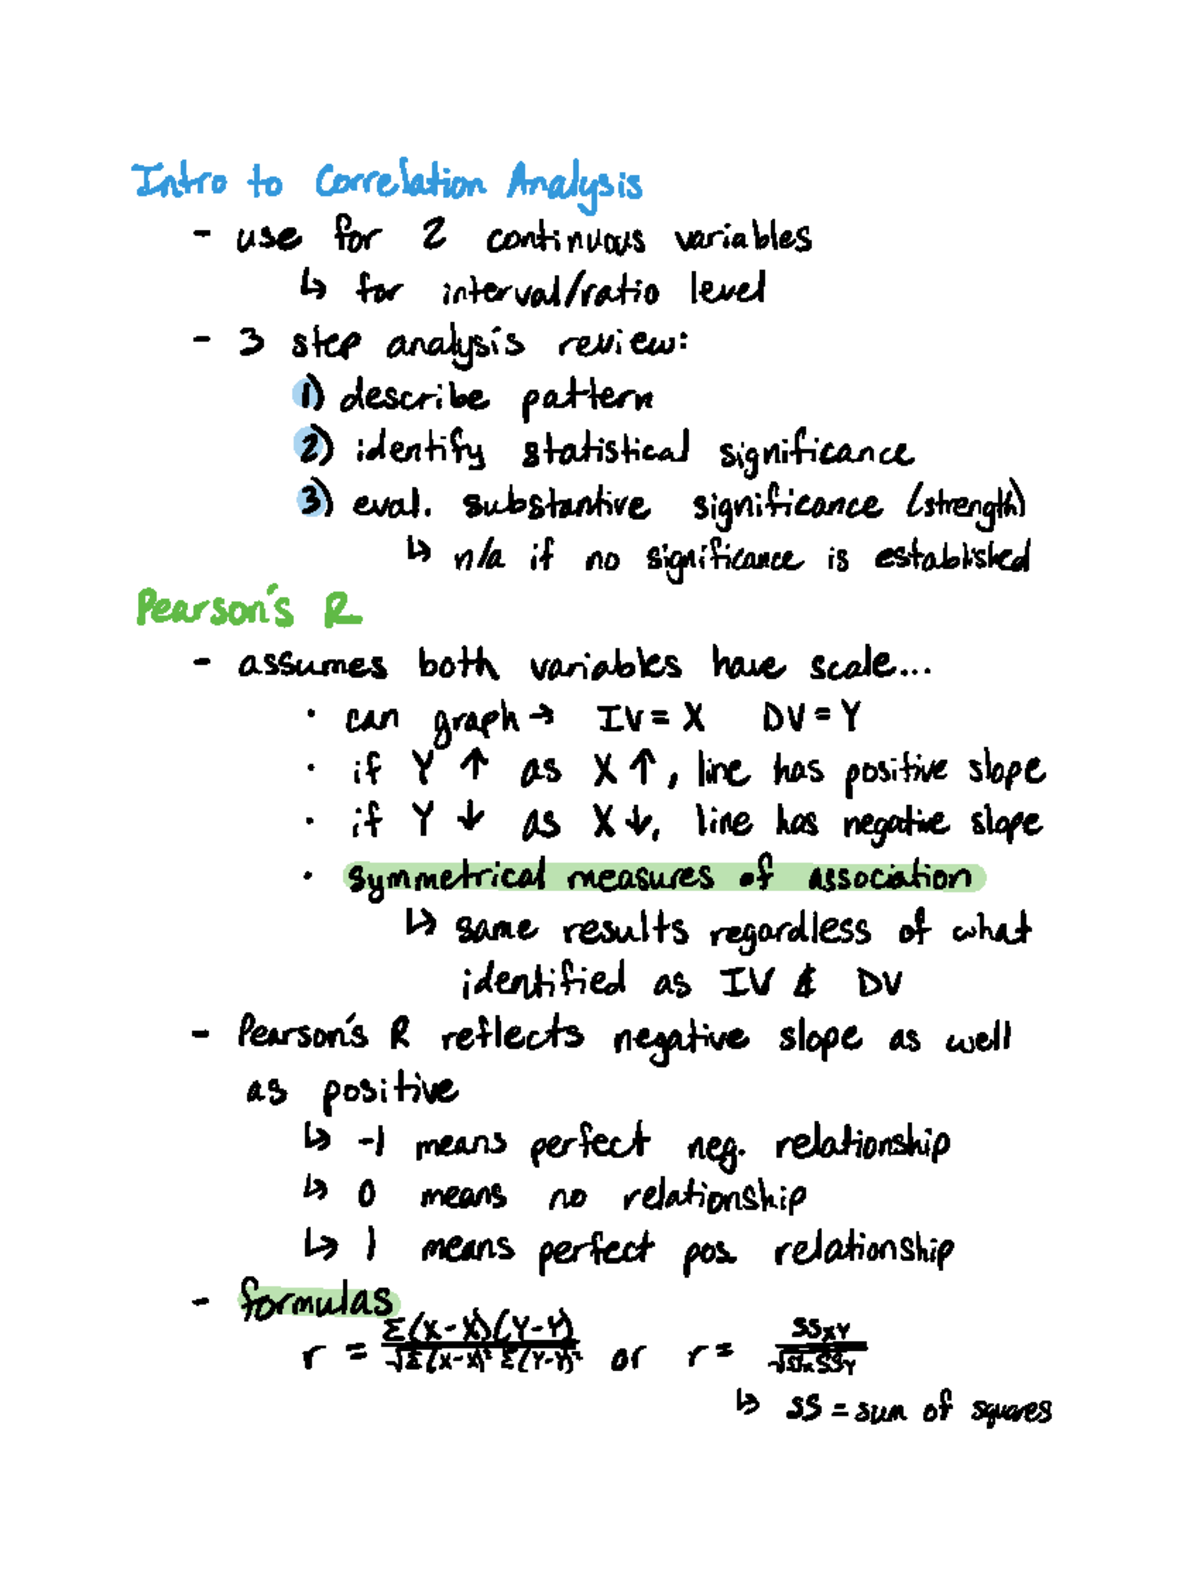 Intro to Correlation Analysis
- use for 2 continuous variables
↳ for interval/ratio level
- 3 step analysis review:
1) describe pattern
2) identify statistical significance
3) eval. substantive significance (strength)
↳ n/a if no significance is established
Pearson's R
- assumes both variables have scale...
• can graph → IV = X DV = Y
• if Y ↑ as X ↑, line has positive slope
• if Y ↓ as X ↓, line has negative slope
• symmetrical measures of association
↳ same results regardless of what
identified as IV & DV
- Pearson's R reflects negative slope as well
as positive
↳ -1 means perfect neg. relationship
↳ 0 means no relationship
↳ 1 means perfect pos. relationship
- formulas
r = Σ(X-X)(Y-Y) / √Σ(X-X)² Σ(Y-Y)² or r = SSXY / √SSx SSY
↳ SS = sum of squares